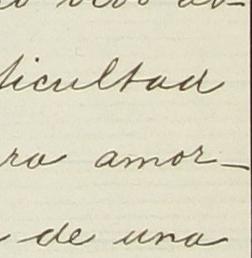 ficultad
ra amor-
de una